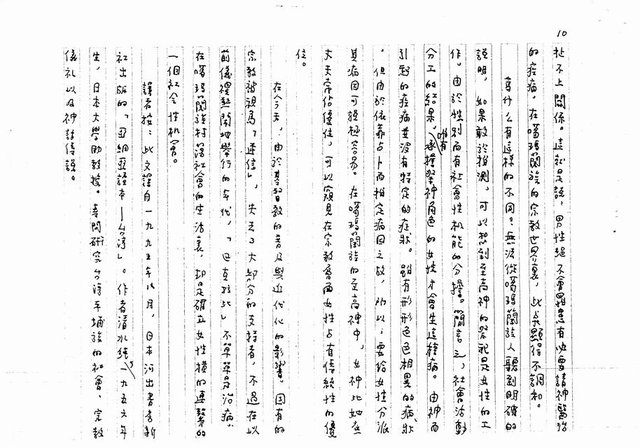 10
扯不上關係。這就是說，男性絕不會罹患有必要請神醫治
的疾病，在噶瑪蘭族的宗教世界裏，此點顯得不調和。
為什麼有這樣的不同？無法從噶瑪蘭族人聽到明確的
說明，如果敢於推測，可以想到至高神的祭祀是女性的工
作。由於性別而有社會性機能的分擔。簡言之，社會活動
分工的結果，唯有承擔祭神角色的女性才會生這種病。由神而
引起的疾病並沒有特定的症狀。雖有形形色色相異的病狀
，但由於依靠占卜而推定病因之故，所以，要給女性分派
其病因可說極容易。在噶瑪蘭族的至高神中，女神比她在
丈夫常佔優位，可以窺見在宗教層面女性占有傳統性的優
位。
在今天，由於基督教的普及與近代化的影響，固有的
宗教被視為「迷信」，失去了大部分的支持者，不過在以
前儀禮熱鬧地舉行的年代，「巴克拉比」不單單為治病，
在噶瑪蘭族村落社會的生活裏，却是確立女性橫的連繫的
一個社會性机會。
譯者按：此文譯自一九九五年八月，日本河出書房新
社出版的「 ─台灣」。作者清水純，一九五六年
生，日本大學助教授。專門研究台灣平埔族的社會、宗教
儀礼以及神話傳說。